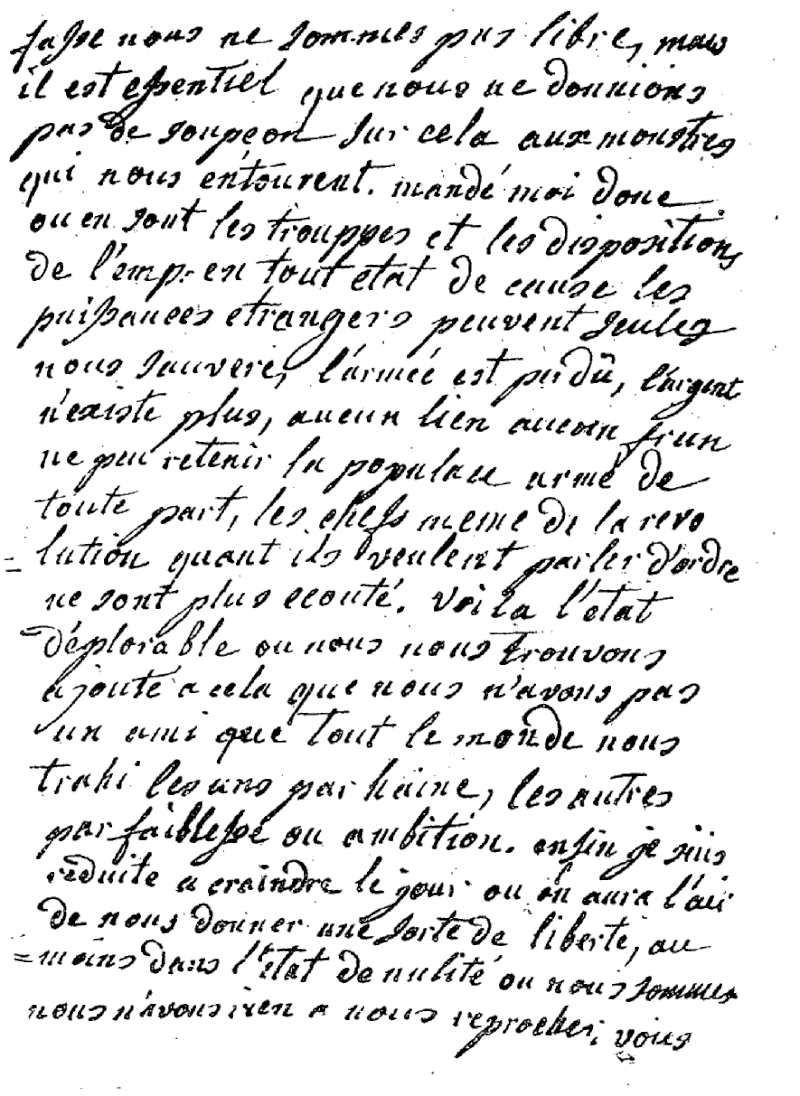 fasse nous ne sommes pas libre, mais
il est essentiel que nous ne donnions
pas de soupçon sur cela aux monstres
qui nous entourent. mandé moi donc
ou en sont les trouppes et les dispositions
de l'emp: en tout etat de cause les
puissances etrangers peuvent seules
nous sauvere, l'armée est perdû, l'argent
n'existe plus, aucun lien aucun frun
ne peu retenir la populace armé de
toute part, les chefs meme de la revo
= lution quant ils veulent parler d'ordre
ne sont plus ecouté. voila l'état
déplorable ou nous nous trouvons
ajouté a cela que nous n'avons pas
un ami que tout le monde nous
trahi les uns par haine, les autres
par faiblesse ou ambition. enfin je suis
reduite a craindre le jour ou on aura l'air
de nous donner une sorte de liberté, au
= moins dans l'état de nulité ou nous sommes
nous n'avons rien a nous reprocher. vous